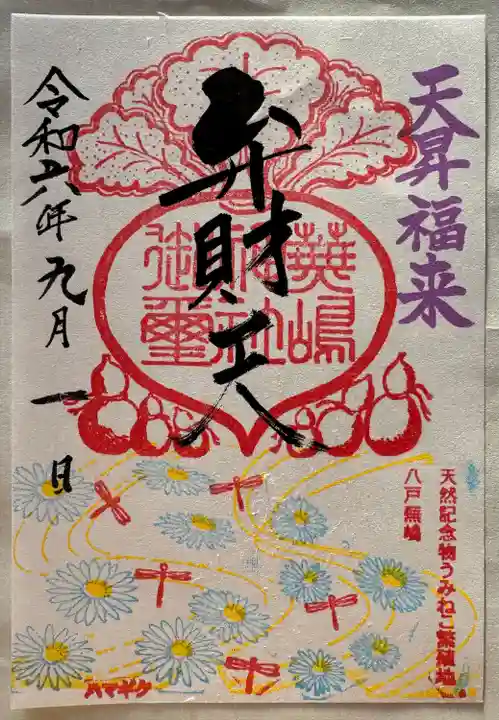 天昇福来
弁財天
蕪嶋
神社
御璽
令和六年九月一日
天然記念物うみねこ繁殖地
八戸蕪嶋
ハマギク